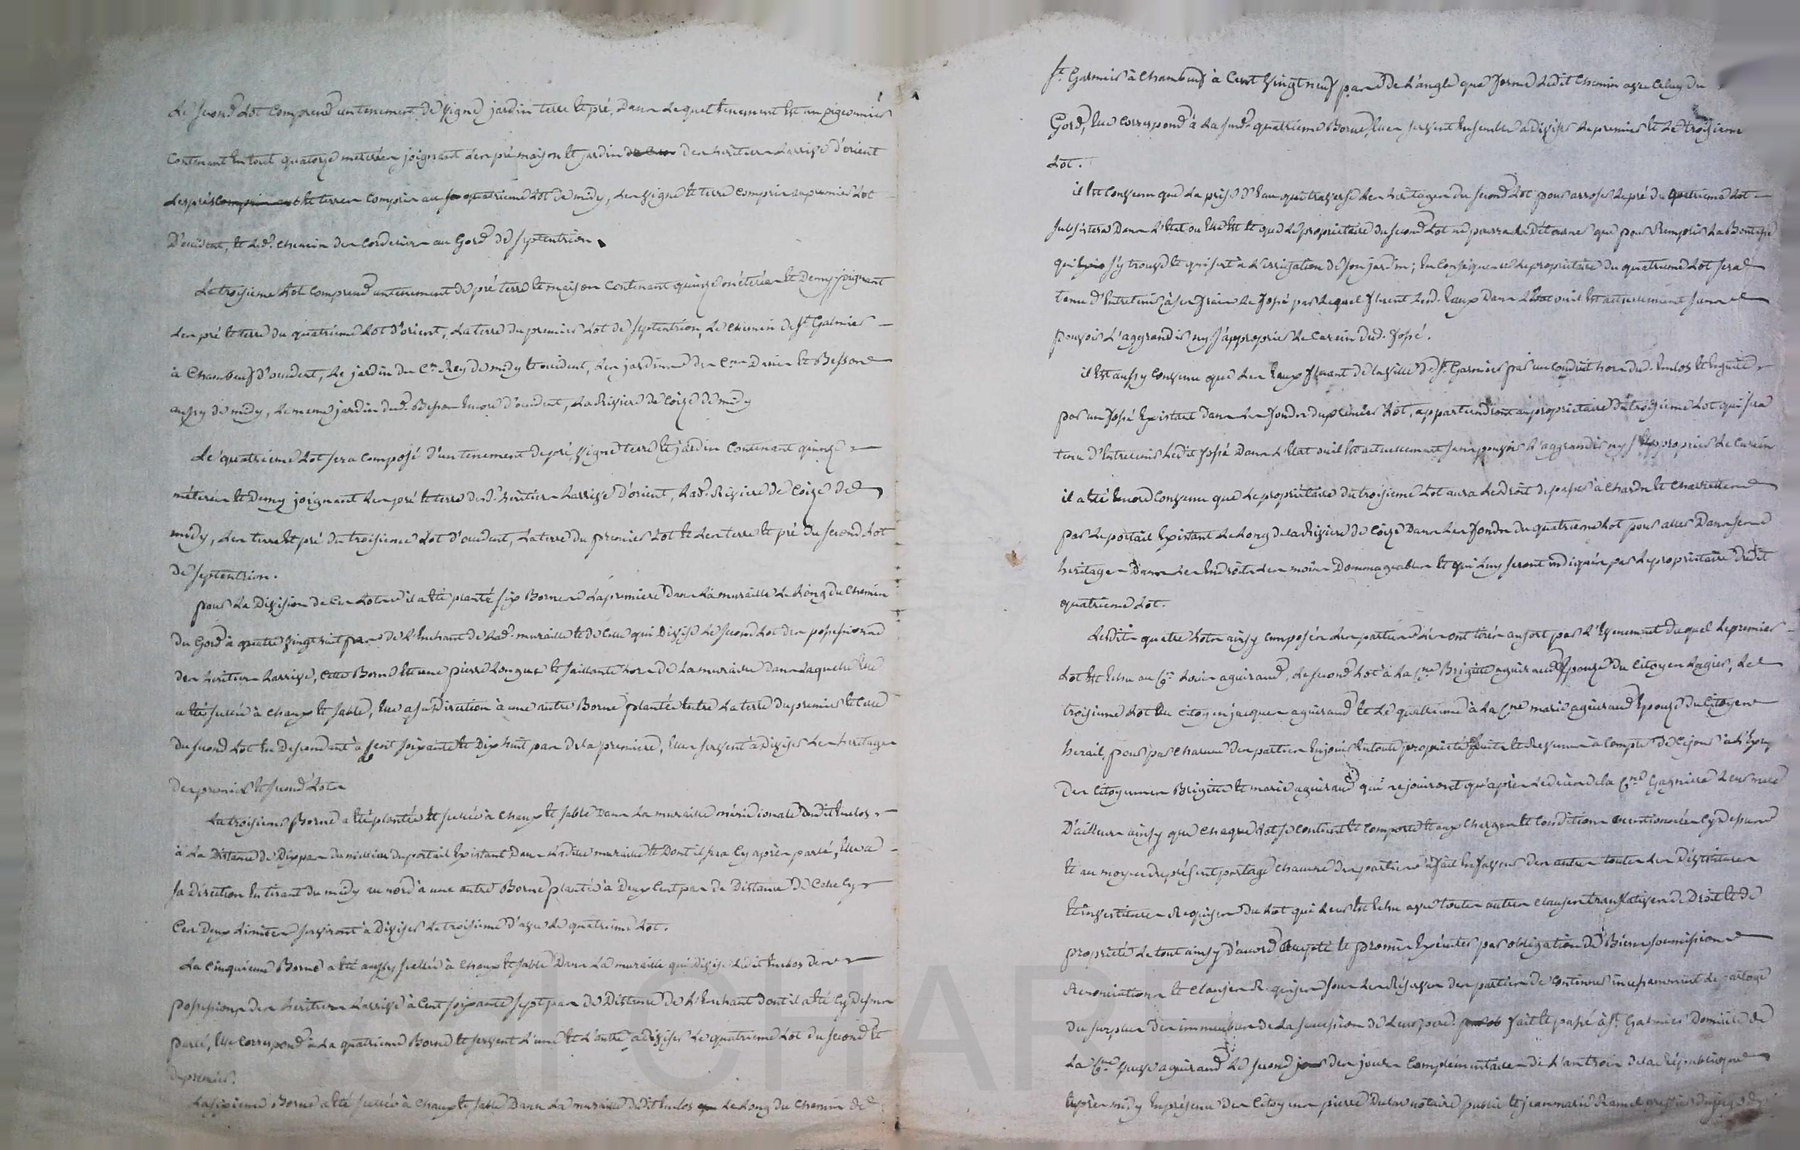 Le second Lot Comprend un tenement de vigne jardin terre et pré, dans Lequel tenement Est un pigeonnier
Contenant En tout quatorze meterées joignant Les pré maison et jardin des heritiers Larrise d'orient
Les prés et terres Compris au quatrieme Lot de midy, Les vigne et terre Compris au premier Lot
D'occident, et Led. chemin des Cordeliers au Gord de septentrion.
Le troisieme Lot Comprend un tenement de pré terre et maison Contenant quinze méterées et demy joignant
Les pré et terre du quatrieme Lot d'orient, La terre du premier Lot de septentrion, Le chemin de St. Galmier
à Chambeuf d'occident, Le jardin du Cn. Rey de midy et occident, Les jardins des Cens. Devin et Besson
aussy de midy, Le meme jardin dud. Besson Encore d'occident, La Riviere de Coize de midy
Le quatrieme Lot sera Composé d'un tenement de pré, vigne terre et jardin Contenant quinze
méterées et demy joignant Les pré et terre desd. heritiers Larrise d'orient, Lad. Riviere de Coize de
midy, Les terre et pré du troisieme Lot d'occident, La terre du premier Lot et Les terre et pré du second Lot
de septentrion.
pour La Division de Ces Lots il a été planté six Bornes La premiere dans La muraille Le Long du Chemin
du Gord à quatre vingt huit pas de L'Enchant de Lad. muraille et de Celle qui Divise Le second Lot des possessions
des heritiers Larrise, Cette Borne Est une pierre Longue et saillante hors de La muraille dans Laquelle Elle
a été scellée à chaux et sable, Elle a sa Direction à une autre Borne plantée Entre La terre du premier et Celle
du second Lot En Descendant à Cent soixante et Dix huit pas de La premiere, Elles servent à Diviser Les heritages
des premier et second Lots
La troisieme Borne a été plantée et scellée à chaux et sable Dans La muraille méridionale Dudit Enclos
à La Distance de Dix pas du millieu du portail Existant Dans Ladite muraille et Dont il sera Cy après parlé, Elle a
sa direction En tirant du midy au nord à une autre Borne plantée à Deux Cent pas de Distance de Celle Cy
Ces Deux Limites serviront à Diviser Le troisieme d'avec Le quatrieme Lot.
La Cinquieme Borne a été aussy scellée à Chaux et sable Dans La muraille qui Divise Ledit Enclos des
possessions des heritiers Larrise à Cent soixante sept pas de Distance de L'Enchant dont il a été Cy dessus
parlé, Elle Correspond à La quatrieme Borne et servent L'une et L'autre à Diviser Le quatrieme Lot du second et
du premier.
La sixieme Borne a été scellée à Chaux et sable Dans La muraille dudit Enclos Le Long du Chemin de
St. Galmier à Chambeuf à Cent vingt neuf pas de L'angle que forme Ledit Chemin avec Celuy du
Gord, Elle Correspond à La susd. quatrieme Borne, Elles servent Ensemble à Diviser Le premier et Le troisieme
Lot.
il Est Convenu que La prise d'Eau qui traverse Les heritages du second Lot pour arroser Le pré du quatrieme Lot
subsistera Dans L'Etat ou Elle Est et que Le proprietaire du second Lot ne pourra La Détourner que pour Remplir La Boutasse
qui s'y trouve et qui sert à L'irrigation de son jardin; En Consequence Le proprietaire du quatrieme Lot sera
tenu d'Entretenir à ses frais Le fossé par Lequel fluent Lesd. Eaux Dans L'Etat ou il Est actuellement sans
pouvoir L'aggrandir ny s'approprier Le Curin dud. fossé.
il Est aussy Convenu que Les Eaux fluant de La ville de St. Galmier par un Conduit hors dud. Enclos et Ensuite
par un fossé Existant dans Les fonds du premier Lot, appartiendront au proprietaire du troisieme Lot qui sera
tenu d'Entretenir Ledit fossé Dans L'Etat ou il Est actuellement sans pouvoir L'aggrandir ny s'approprier Le Curin
il a été Encore Convenu que Le proprietaire du troisieme Lot aura Le droit de passer à Chards et Charrettes
par Le portail Existant Le Long de La Riviere de Coize Dans Les fonds du quatrieme Lot pour aller Dans ses
heritages Dans Les Endroits Les moins Dommageables et qui Luy seront indiqués par Le proprietaire Dudit
quatrieme Lot.
Lesdits quatre Lots ainsy Composés Les parties Les ont tirés au sort par L'Evenement duquel Le premier
Lot Est Echu au Cn. Louis aguiraud, Le second Lot à La Cne. Brigitte aguiraud Epouze du Citoyen Lagier, Le
troisieme Lot Au Citoyen jacques aguiraud et Le quatrieme à La Cne. marie aguiraud Epouze du Citoyen
herail, pour par Chacune des parties En jouir En toute propriété fruits et Revenus à Compter de Ce jour à L'Exception
Des Citoyennes Brigitte et marie aguiraud qui n'en jouiront qu'après Le décès de La Cne. Garniere Leur mere
D'ailleurs ainsy que Chaque Lot se Contient et Comporte et aux Charges et Conditions mentionnées Cy dessus
Et au moyen du présent partage chacune des parties s'est fait En faveur des autres toutes Les Destitutions
Et investitures Requises Du Lot qui Leur Est Echu avec toutes autres Clauses translatives de Droit et de
propriété Le tout ainsy d'accord accepté et promis Executer par obligation de Biens soumissions
Renonciations et Clauses Requises sous Les Réserves des parties de Continuer incessamment Le partage
du surplus des immeubles de La succession de Leur pere. fait et passé à St. Galmier Domicile de
La Cne. veuve aguiraud Le second des jours Complementaires de L'an trois de La République
après midy En présence des Citoyens pierre Dulac notaire public et jean marie Ramel greffier du juge de